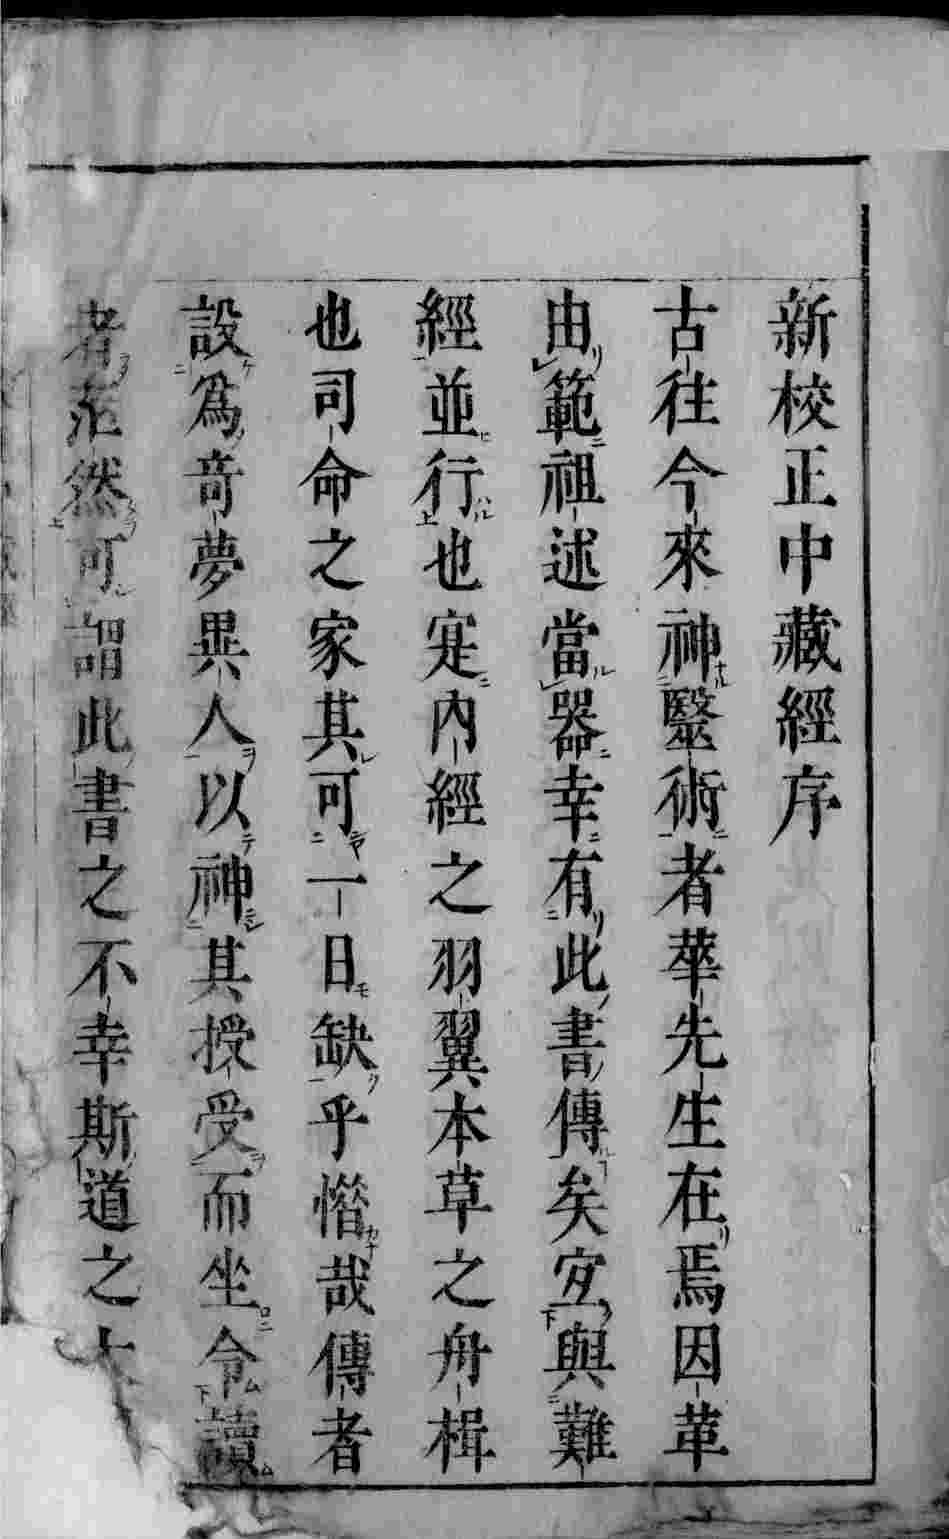 新校正中藏經序
古往今來神毉術者華先生在焉因革
由範祖述當器幸有此書傳矣宜與難
經並行也寔內經之羽翼本草之舟楫
也司命之家其可一日缺乎惜哉傳者
設爲竒夢異人以神其授受而坐令讀
者茫然可謂此書之不幸斯道之